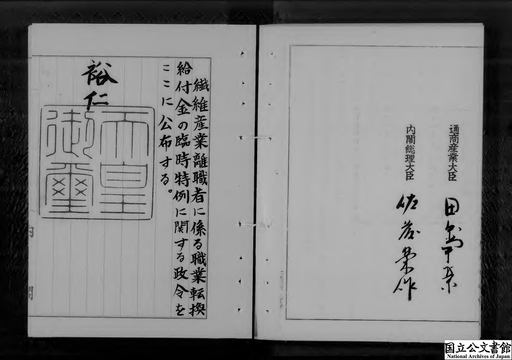 通商産業大臣
内閣総理大臣 佐藤榮作
繊維産業離職者に係る職業転換
給付金の臨時特例に関する政令を
ここに公布する。
裕仁
天皇
御璽
国立公文書館
National Archives of Japan